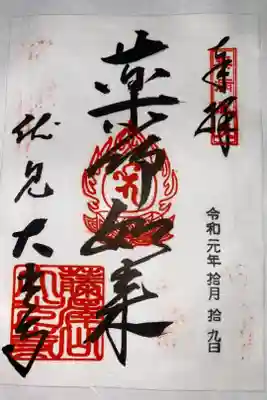 奉拝
令和元年拾月拾九日
薬師如来
伏見